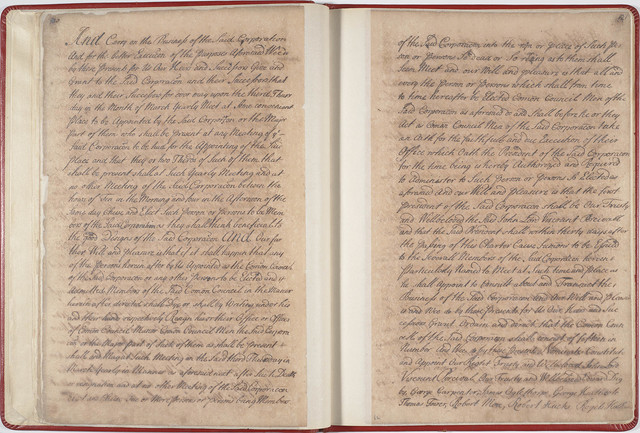 And Carry on the Business of the Said Corporation
And for the better Execution of the Purposes aforesaid We do
by these Presents for Us Our Heirs and Successors Give and
Grant to the Said Corporation and their Successors that
they and their Successors for ever may upon the third Thurs
day in the Month of March Yearly Meet at Some convenient
place to be Appointed by the Said Corporation or the Major
Part of them who shall be present at any Meeting of ye
Said Corporation to be had for the Appointing of the Said
Place and that they or two Thirds of Such of them that
shall be present shall at Such Yearly Meeting and at
no other Meeting of the Said Corporation between the
hours of Ten in the Morning and four in the Afternoon of the
Same day Chuse and Elect Such Person or Persons to be Mem
bers of the Said Corporation as they shall think beneficial to
the Good Designs of the Said Corporation And Our fur
ther Will and pleasure is that if it shall happen that any
of the Persons herein after by Us Appointed as the Common Council
of the Said Corporation or any other Persons to be Elected and
Admitted Members of the Said Common Council in the Manner
herein after directed shall dye or shall by Writing under his
and their hands respectively Resign his or their Office or Offices
of Common Council Man or Common Council Men the Said Corpora
tion or the Major part of Such of them as shall be present
shall and May at Such Meeting on the Said third Thursday in
March Yearly in Manner as aforesaid next after Such Death
or resignation and at no other Meeting of the Said Corporation
Elect one or more person or persons being Members
of the Said Corporation into the room or place of Such Per
son or Persons So dead or So resigning as to them shall
Seem Meet and our Will and pleasure is that all and
every the Person or Persons which shall from time
to time hereafter be Elected Common Council Men of the
Said Corporation as aforesaid do and shall before he or they
Act as Common Council Men of the Said Corporation take
an Oath for the faithfull and due Execution of their
Office which Oath the President of the Said Corporation
for the time being is hereby Authorized and Required
to Administer to Such Person or Persons So Elected as
aforesaid And our Will and Pleasure is that the first
President of the Said Corporation shall be Our Trusty
and Welbeloved the Said John Lord Viscount Percivall
and that the Said President shall within thirty days after
the passing of this Charter Cause Summons to be Issued
to the Several Members of the Said Corporation herein
Particularly Named to Meet at Such time and Place as
he shall Appoint to Consult about and Transact the
Business of the Said Corporation And Our Will and pleasure
is and We do by these Presents for Us Our Heirs and Suc
cessors Grant Ordain and direct that the Common Coun
cil of the Said Corporation shall consist of fifteen in
Number And We do by these Presents Nominate Constitute
and Appoint Our Right Trusty and Welbeloved John Lord
Viscount Percivall Our Trusty and Welbeloved Edward Digby
George Carpenter James Oglethorpe George Heathcote
Thomas Tower Robert More Robert Hucks Rogers Holland